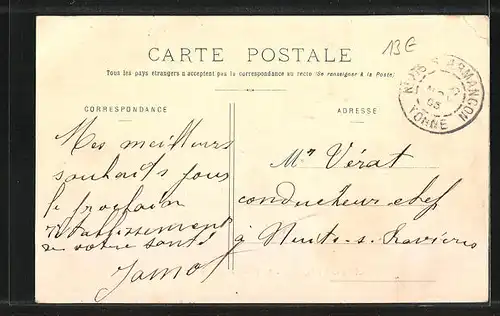 13€
CARTE POSTALE
Tous les pays étrangers n'acceptent pas la correspondance au recto (Se renseigner à la Poste)
CORRESPONDANCE
ADRESSE
NUITS S. ARMANÇON
YONNE
Mes meilleurs
souhaits pour
le prochain
rétablissement
de votre santé
Mr Vérat
conducteur chef
à Nuits-s-Ravières